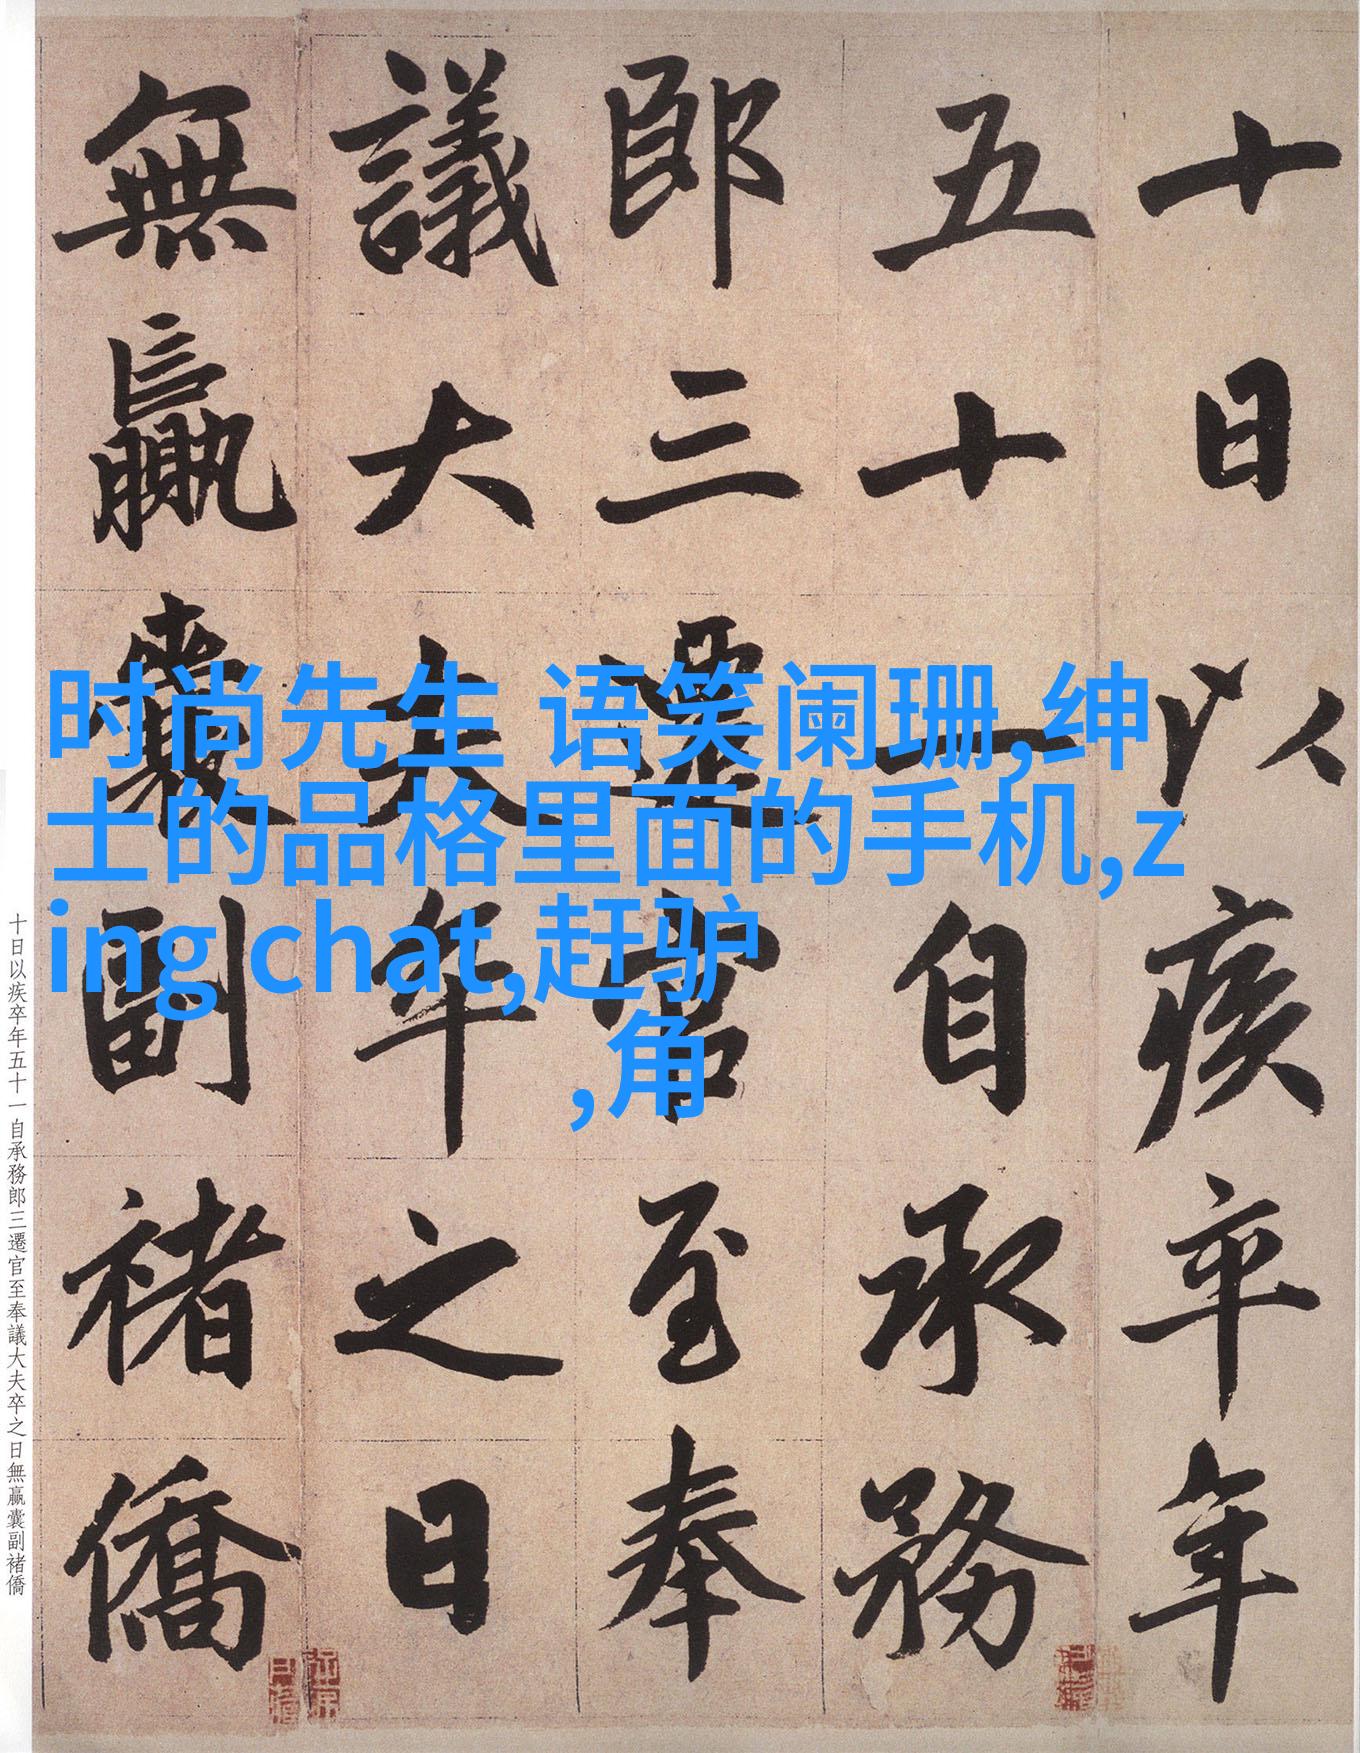 十日以疾卒年
五十一自承務
郎三遷官至奉
議大夫卒之日
無贏囊副褚僑
十日以疾卒年五十一自承務郎三遷官至奉議大夫卒之日無贏囊副褚僑
时尚先生 语笑阑珊,绅
士的品格里面的手机,z
ing chat,赶驴
,角